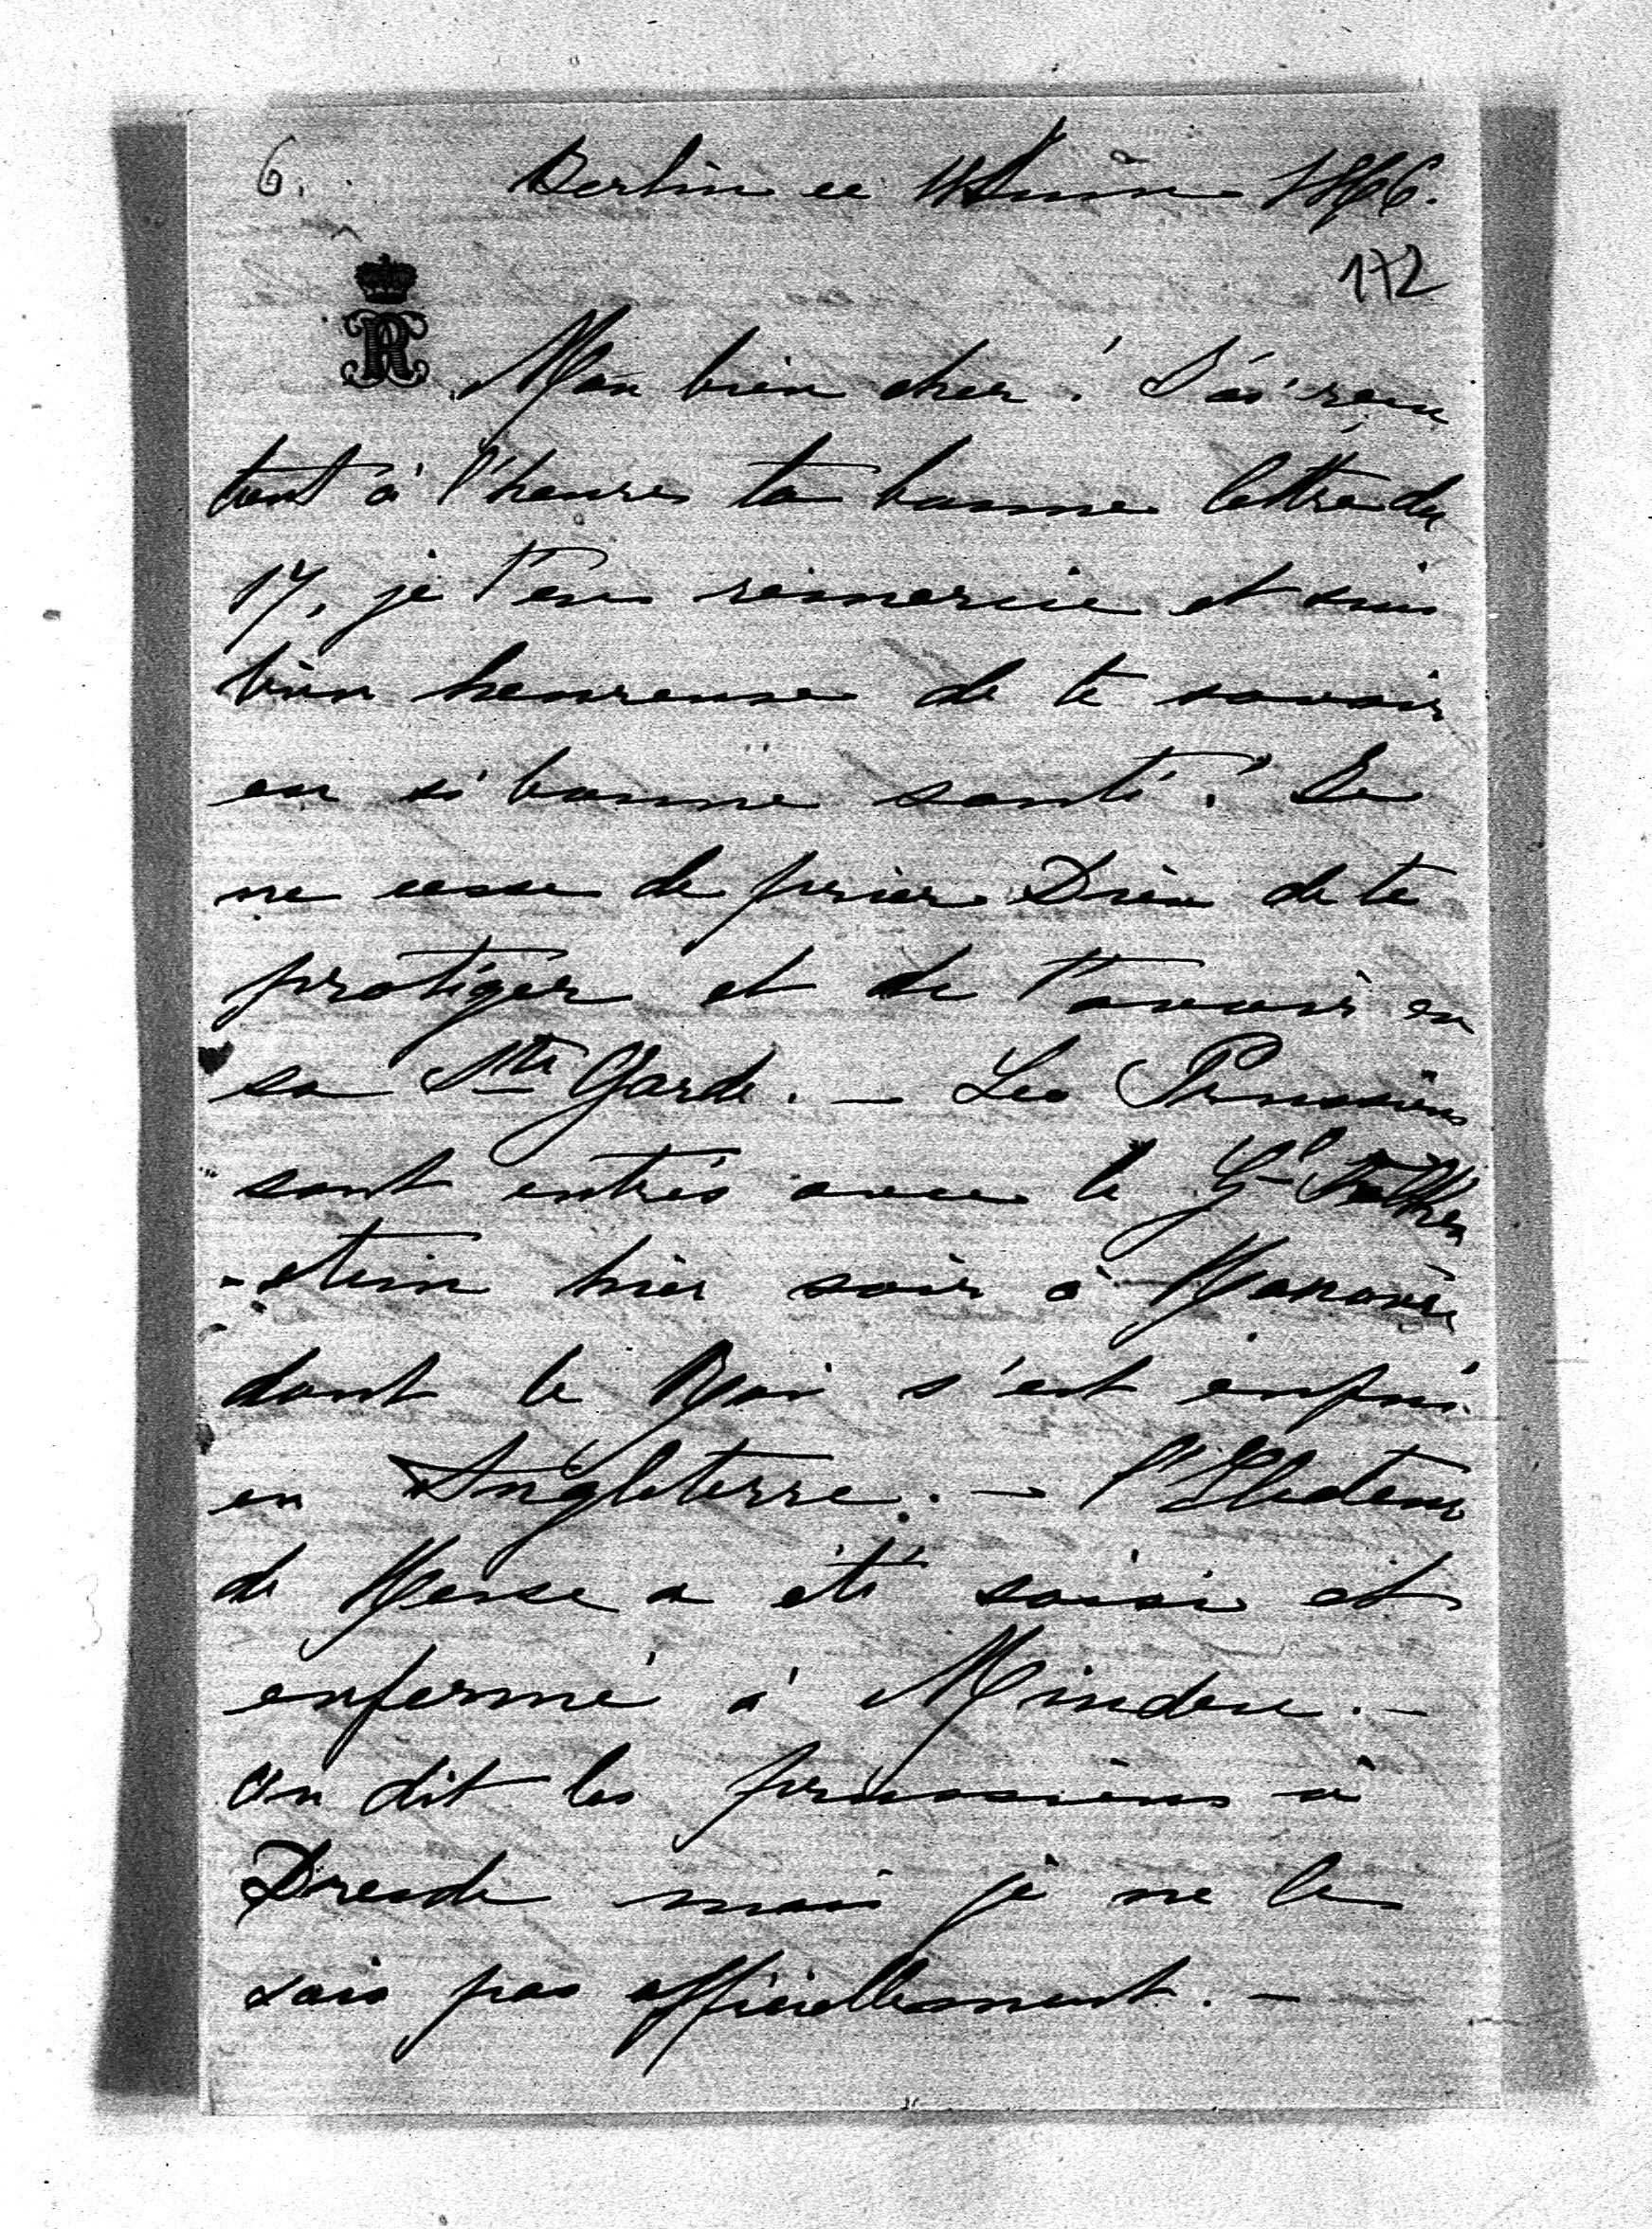 6. Berlin ce Juin 1866.
172
R
Mon bien cher! J'ai reçu
tout à l'heure ta bonne lettre du
17, je t'en remercie et suis
bien heureuse de te savoir
en si bonne santé! Je
ne cesse de prier Dieu de te
protéger et de t'avoir en
sa Ste Garde. — Les Prussiens
sont entrés avec le Gl
-stein hier soir à Hanovre
dont le Roi s'est enfui
en Angleterre. — l'Electeur
de Hesse a été saisi et
enfermé à Minden. —
on dit les prussiens à
Dresde mais je ne le
sais pas officiellement. —